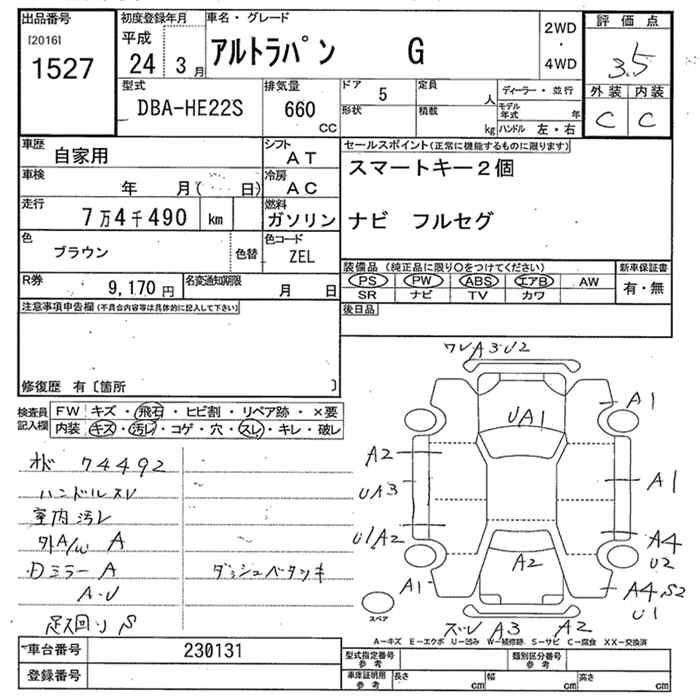 出品番号 初度登録年月 車名・グレード 2WD 評価点
[2016] 平成 アルトラパン G ・
1527 24 3月 4WD 3.5
型式 排気量 ドア 5 定員 人 ディーラー・並行 外装 内装
DBA-HE22S 660 CC 形状 積載 kg モデル年式 年 C C
ハンドル 左・右
車歴 自家用 シフト AT セールスポイント(正常に機能するものに限ります)
車検 年 月( 日) 冷房 AC スマートキー2個
走行 7万4千490 km 燃料 ガソリン ナビ フルセグ
色 ブラウン 色替 色コード ZEL
装備品 (純正品に限り○をつけてください) 新車保証書
R券 9,170円 名変通知期限 月 日 PS PW ABS エアB AW 有・無
SR ナビ TV カワ
注意事項申告欄(不具合内容等は具体的に記入して下さい) 後日品
修復歴 有〔箇所 〕
検査員記入欄 FW キズ・飛石・ヒビ割・リペア跡・×要
内装 キズ・汚レ・コゲ・穴・スレ・キレ・破レ
74492
ハンドルスレ
室内汚レ
外A/W A
ミラーA ダッシュベタツキ
A・U
足廻りS
ワレA3U2
UA1 A1
A2
UA3 A1
U1A2 A4
U2
A1 A2 A4S2
U1
スペア
ズレ A3 A2
A-キズ E-エクボ U-凹み W-補修跡 S-サビ C-腐食 XX-交換済
車台番号 230131 型式指定番号 参考 類別区分番号 参考
登録番号 車庫証明用 参考 長さ cm 幅 cm 高さ cm